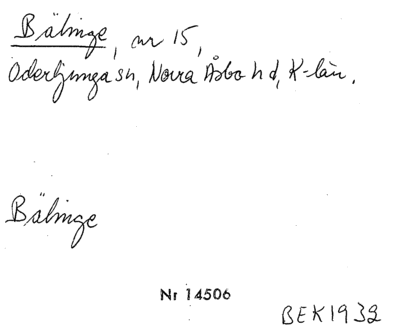 Bälinge, nr 15,
Oderljunga sn, Norra Åsbo hd, K-län.
Bälinge
Nr 14506
BEK1932